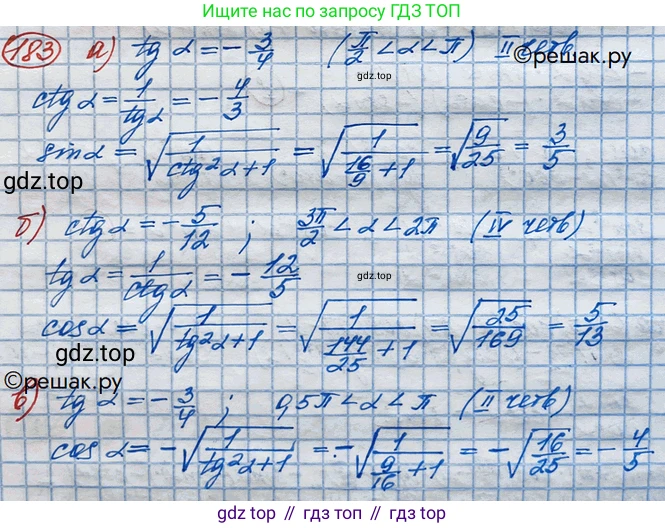 Больше решений по запросу ГДЗ ТОП
183 а) tg α = -3/4 (π/2 < α < π) II четв
©reшак.ру
gdz.top
ctg α = 1/tg α = -4/3
sin α = √(1/(ctg²α+1)) = √(1/(16/9+1)) = √(9/25) = 3/5
gdz.top
б) ctg α = -5/12 ; 3π/2 < α < 2π (IV четв)
tg α = 1/ctg α = -12/5
gdz.top
cos α = √(1/(tg²α+1)) = √(1/(144/25+1)) = √(25/169) = 5/13
gdz.top
©reшак.ру
©reшак.ру
в) tg α = -3/4 ; 0,5π < α < π (II четв)
cos α = -√(1/(tg²α+1)) = -√(1/(9/16+1)) = -√(16/25) = -4/5
gdz.top // гдз топ // gdz.top // гдз топ